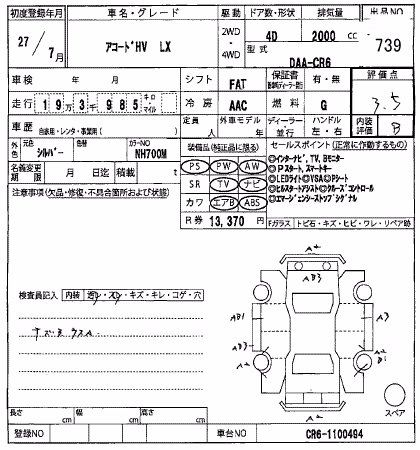 初度登録年月 車名・グレード 駆動 ドア数・形状 排気量 出品NO
27/7月 アコードHV LX 2WD・4WD 4D 2000 cc 739
型式 DAA-CR6
車検 年 月 シフト FAT 保証書 有・無 評価点 3.5
走行 19万3985 キロ・マイル 冷房 AAC 燃料 G 内装評価 B
車歴 自家用・レンタ・事業用( ) 定員 人 外車モデル 年 ディーラー・並行 ハンドル 左・右
外色 元色 シルバー 色替 カラーNO NH700M
名義変更期限 月 日迄 積載 t
装備品(純正品に限る)
PS PW AW
SR TV ナビ
カワ エアB ABS
R券 13,370 円
セールスポイント(正常に作動するもの)
◎インターナビ、TV、Bモニター
◎Pスタート、スマートキー
◎LEDライト◎VSA◎Pシート
◎ヒルスタートアシスト◎クルーズコントロール
◎エマージェンシーストップシグナル
注意事項(欠品・修復・不具合箇所および状態)
Fガラス トビ石・キズ・ヒビ・ワレ・リペア跡
検査員記入 内装 ・キズ・キレ・コゲ・穴
A2
AB3
AB1 A3
AB3 A2
B1
A2
スペア
長さ cm 幅 cm 高さ cm
登録NO 車台NO CR6-1100494